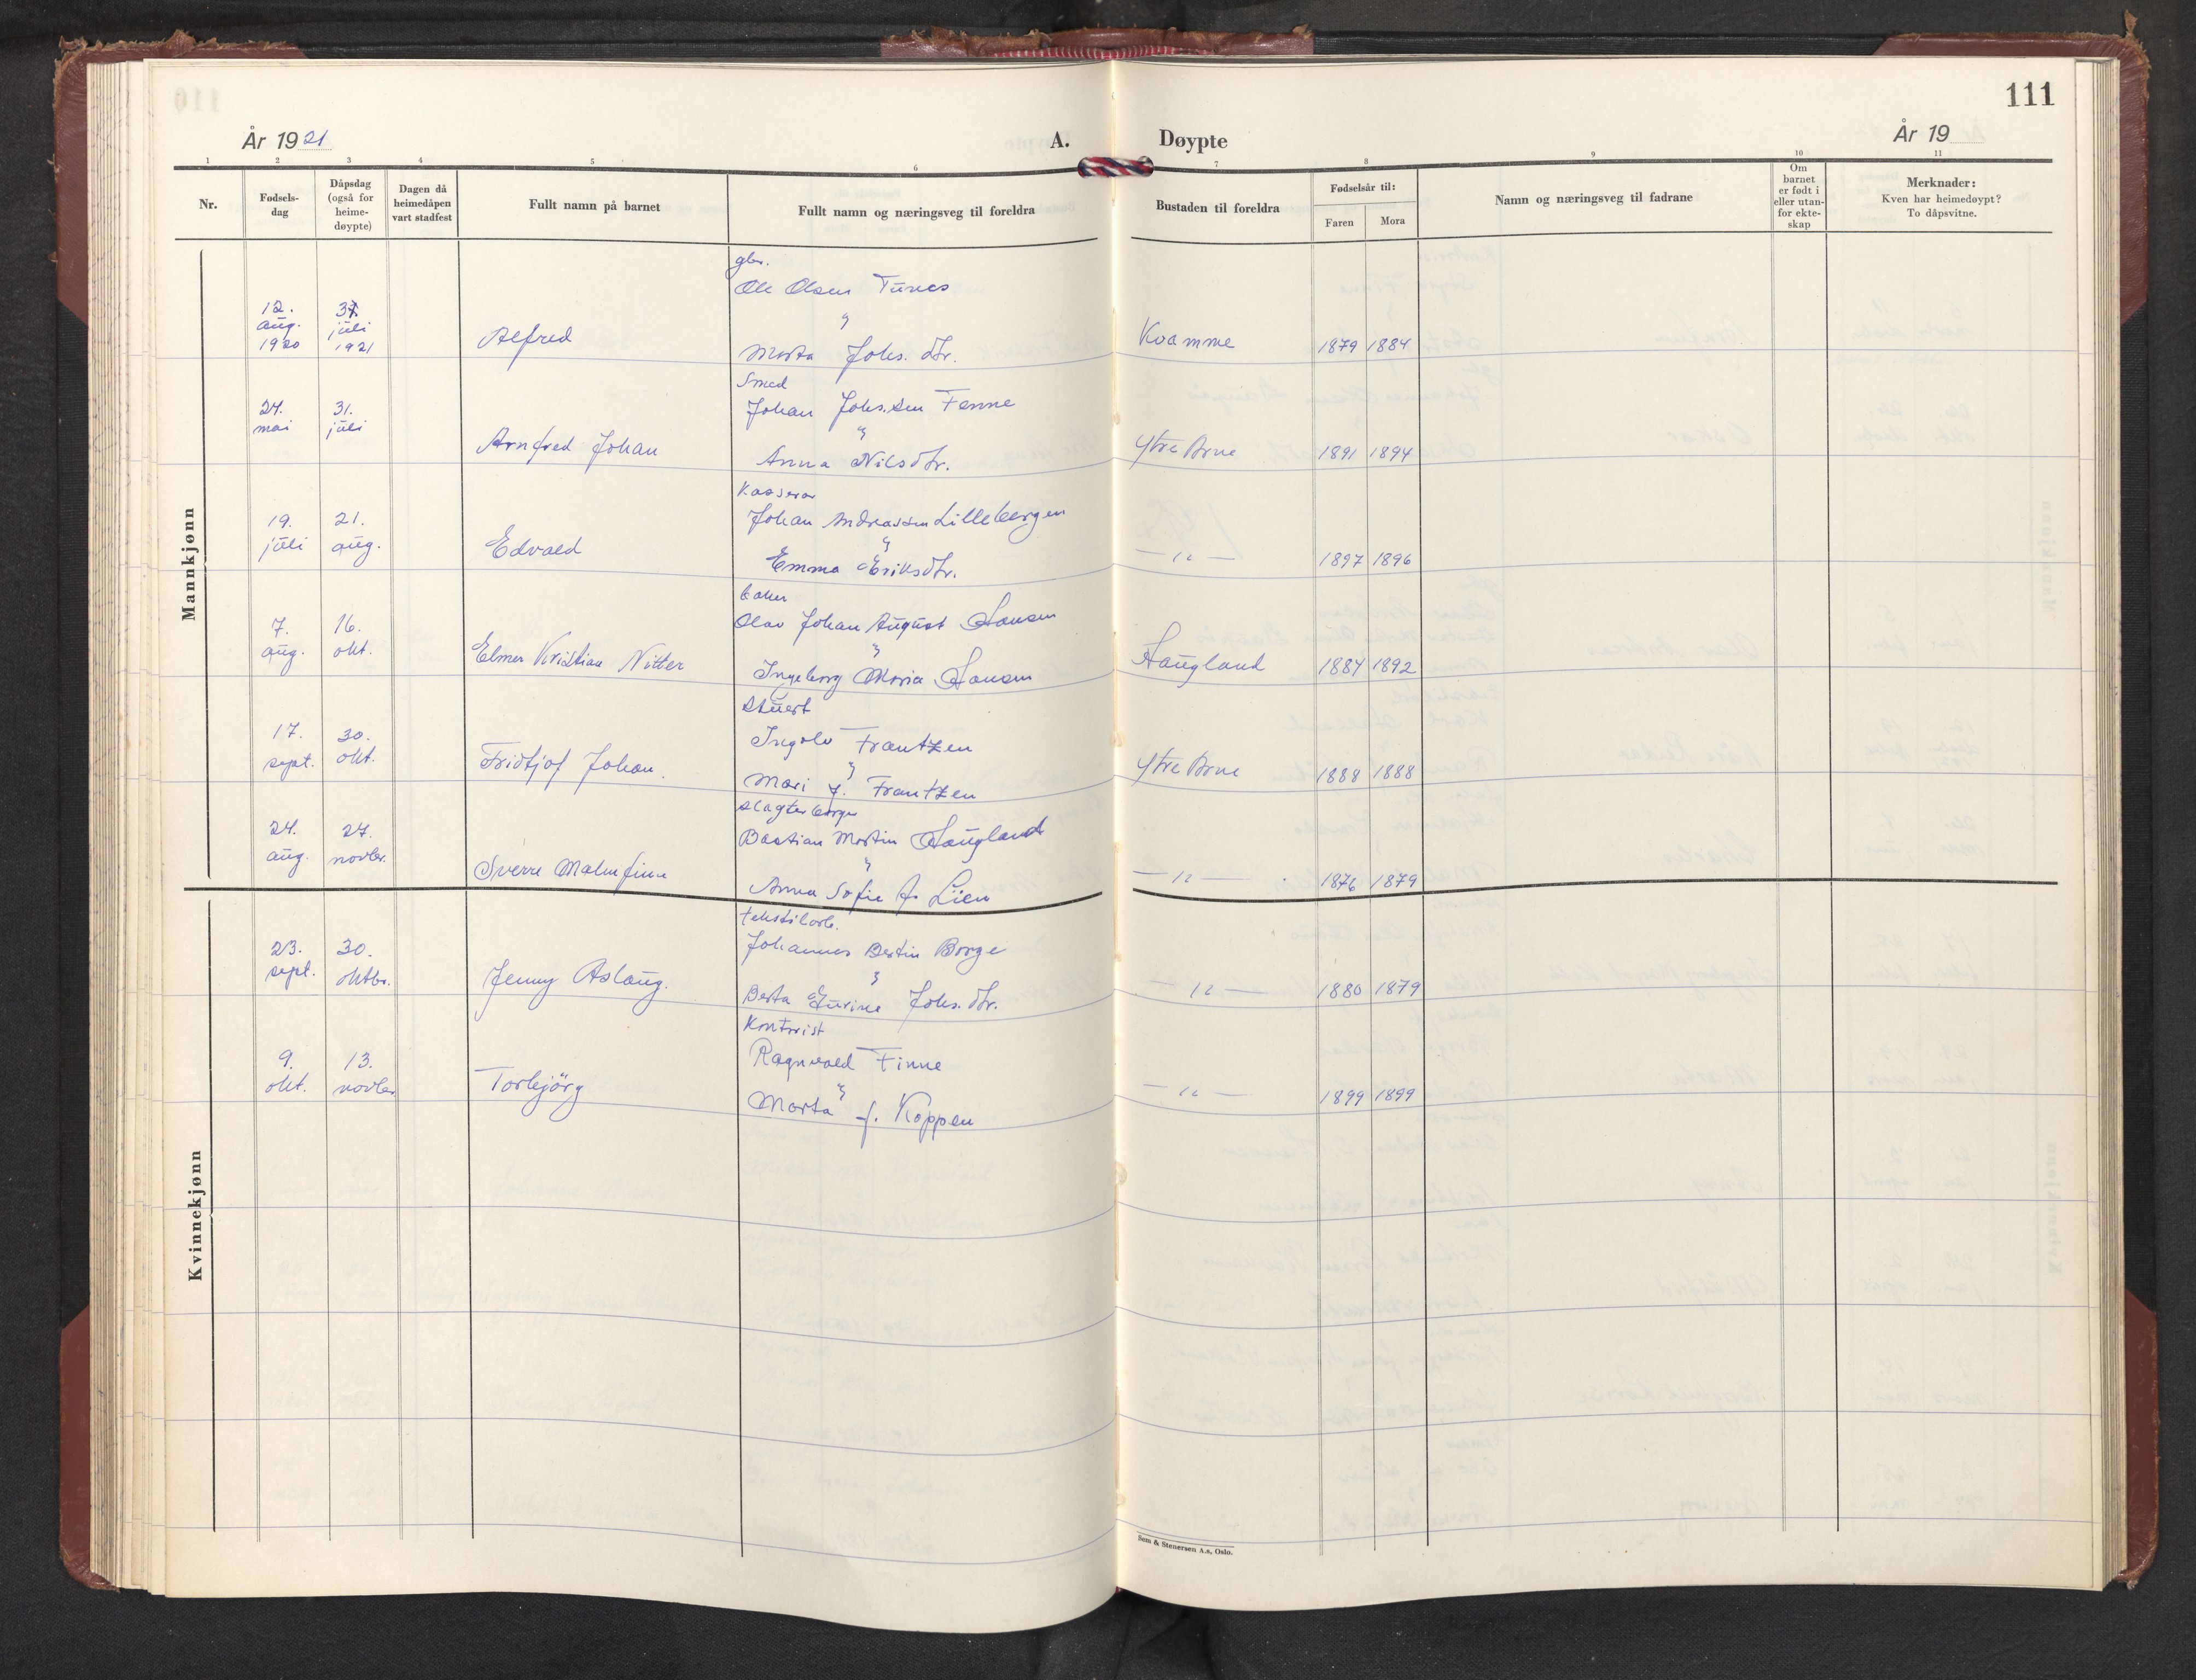 111
År 1921
A. Døypte
År 19
1 2 3 4 5 6 7 8 9 10 11
Nr.
Fødsels-
dag
Dåpsdag
(også for
heime-
døypte)
Dagen då
heimedåpen
vart stadfest
Fullt namn på barnet
Fullt namn og næringsveg til foreldra
Bustaden til foreldra
Fødselsår til:
Faren Mora
Namn og næringsveg til fadrane
Om
barnet
er født i
eller utan-
for ekte-
skap
Merknader:
Kven har heimedøypt?
To dåpsvitne.
Mannkjønn
gbr.
Ole Olsen Tunes
12. aug. 1920 31. juli 1921 Alfred
Marta Johs. dtr. Kvamme 1879 1884
Smed
Johan Johs.sen Fenne
24. mai 31. juli Arnfred Johan
Anna Nilsdtr. Ytre Arne 1891 1894
Kasserar
Johan Andreassen Lillebergen
19. juli 21. aug. Edvald
Emma Eriksdtr. — " — 1897 1896
baker
Olav Johan August Hansen
7. aug. 16. okt. Elmer Kristian Nitter
Ingeborg Maria Hansen Haugland 1884 1892
Stuert
Ingolv Frantzen
17. sept. 30. okt. Fridtjof Johan.
Mari f. Frantzen Ytre Arne 1888 1888
Bastian Martin Haugland
24. aug. 27. novbr. Sverre Malmfinn
Anna Sofie f. Lien — " — 1876 1879
Kvinnekjønn
tekstilarb.
Johannes Bertin Borge
23. sept. 30. oktbr. Jenny Aslaug.
Berta Gurine Johs. dtr. — " — 1880 1879
Kontorist
Ragnvald Finne
9. okt. 13. novbr Torbjörg
Marta f. Koppen — " — 1899 1899
Sem & Stenersen A.s, Oslo.